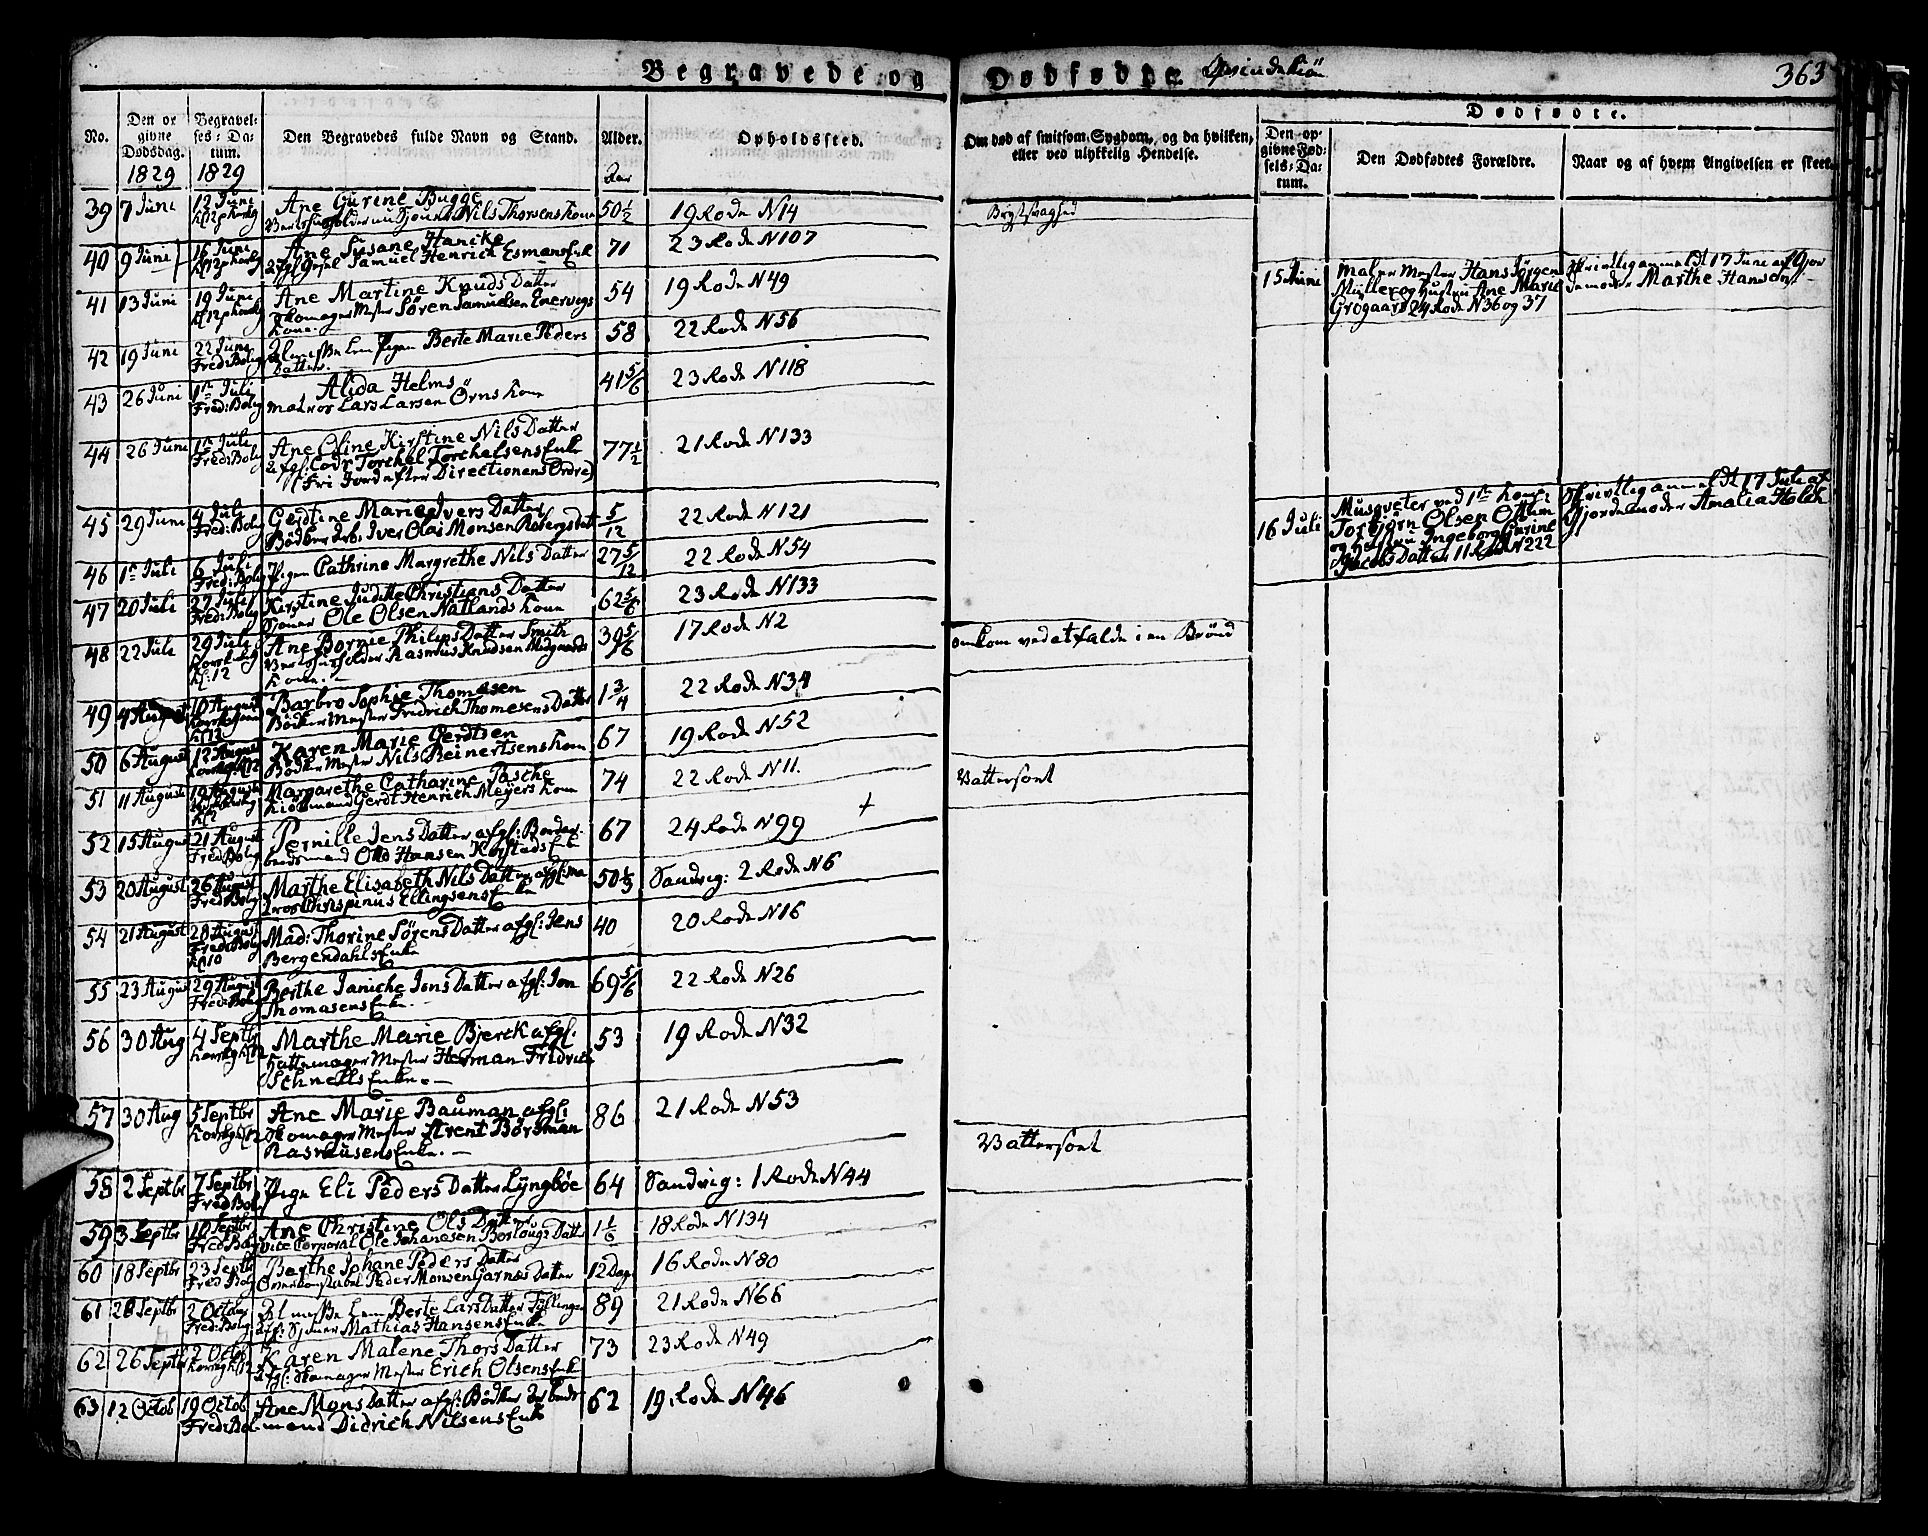 Begravede og Dødfødte. Qvindekiön 363
No. Den opgivne Dødsdag. Begravelses-Datum. Den Begravedes fulde Navn og Stand. Alder. Opholdssted. Om død af smitsom Sygdom, og da hvilken, eller ved ulykkelig Hendelse.
Dødfødte.
Den opgivne Fødsels-Datum. Den Dødfødtes Forældre. Naar og af hvem Angivelsen er skeet.
1829 1829 Aar
39 7 Juni 12 Juni Ane Gurine Bugge 50 1/2 19 Rode N 14 Brystsvaghed
Nils Thorsens Kone
40 9 Juni 16 Juni Ane Susane Hancke 71 23 Rode N 107
Samuel Henrich Esmans Enk
41 13 Juni 19 Juni Ane Martine Knuds Datter 54 19 Rode N 49
Skomager Mester Søren Samuelsen Enervogs
Kone.
42 19 Juni 22 Juni Pigen Berte Marie Peders 58 22 Rode N 56
Fred: Bolig Datter.
43 26 Juni 1ste Juli Alida Helms 41 5/6 23 Rode N 118
Fred: Bolig Matros Lars Larsen Örns Kone
44 26 Juni 1ste Juli Ane Oline Kirstine Nils Datter 77 1/2 21 Rode N 133
Fred: Bolig Afgl: Torchel Torchelsens Enke
(Fri Jord efter Directionens Ordre)
45 29 Juni 4 Juli Gerdtine Marie Ivers Datter 5/12 22 Rode N 121
Fred: Bolig Iver Olai Monsen
46 1ste Juli 6 Juli Pigen Cathrine Margrethe Nils Datter 27 5/12 22 Rode N 54
Fred: Bolig
47 20 Juli 27 Juli Kirstine Juditte Christians Datter 62 5/6 23 Rode N 133
Fred: Bolig Ole Olsen Natlands Kone
48 22 Juli 29 Juli Ane Bornie Philips Datter Smith 39 5/6 17 Rode N 2 omkom ved at falde i en Brönd
Kl: 12 Rasmus Knudsen
Kone. -
49 4 August 10 August Barbro Sophie Thomesen 1 3/4 22 Rode N 34
Bödker Mester Fredrich Thomesens Datter
50 6 August 12 August Karen Marie Gerdtsen 67 19 Rode N 52
Bödker Mester Nils Reinertsens Kone
51 11 August 19 August Margarethe Catharine Pasche 74 22 Rode N 11. Vattersoet
Kiöbmand Gerdt Henrich Meyers Kone
52 15 August 21 August Pernille Jens Datter afgl: 67 24 Rode N 99 +
Fred: Bolig Otto Hansen Korstads Enke
53 20 August 26 August Marthe Elisabeth Nils Datter afgl: Ma 50 1/3 Sandvig: 2 Rode N 6
Fred: Bolig tros Chrispinus Ellingsens Enke
54 21 August 28 August Mad: Thorine Sörens Datter afgl: Jens 40 20 Rode N 16
Fred: Bolig Kl 10 Bergendahls Enke
55 23 August 29 August Berthe Janiche Jons Datter afgl: Jon 69 5/6 22 Rode N 26
Fred: Bolig Thomasens Enke.
56 30 Aug 4 Septbr Marthe Marie Bjerck afgl: 53 19 Rode N 32
Hattemager Mester Herman Fridrich
Schnells Enke. -
57 30 Aug 5 Septbr Ane Marie Bauman afgl: 86 21 Rode N 53 Vattersoet
Skomager Mester Arent Borsman
Rasmusens Enke. -
58 2 Septbr 7 Septbr Pige Eli Peders Datter Lyngböe 64 Sandvig: 1 Rode N 44
Fred Bol
59 3 Septbr 10 Septbr Ane Christine Ols Datter 1 1/6 18 Rode N 134
Fred Bol vice Corporal Ole Johanesen Datter
60 18 Septbr 23 Septbr Berthe Johane Peders Datter 12 Dage 16 Rode N 80
Fred: Bolig Peder Monsen Garnæs Datter
61 26 Septbr 2 Octobr Berte Lars Datter 89 21 Rode N 66
Fred: Bolig Mathias Hansens Enke
62 26 Septbr 2 Octob Karen Malene Thors Datter 73 23 Rode N 49
Afgl: Skomager Mester Erich Olsens Enke
63 12 Octob 19 Octob Ane Mons Datter afgl: Bödker 62 19 Rode N 46
Fred: Bol mand Didrich Nilsens Enke
15 Juni Maler Mester Hans Jörgen Skrivtlig anmeldt 17 Juni af Gjor
Müller og Hustru Ane Marie demoder Marthe Hansen
Grögaard 24 Rode N 36 og 37
16 Juli Musqveter ved 1ste Comp: Skrivtlig anmeldt 17 Juli af
Torbjorn Olsen Gjordemoder Amalia Holck
og Hustru Ingeborg Gurine
Jacobs Datter 11 Rode N 222